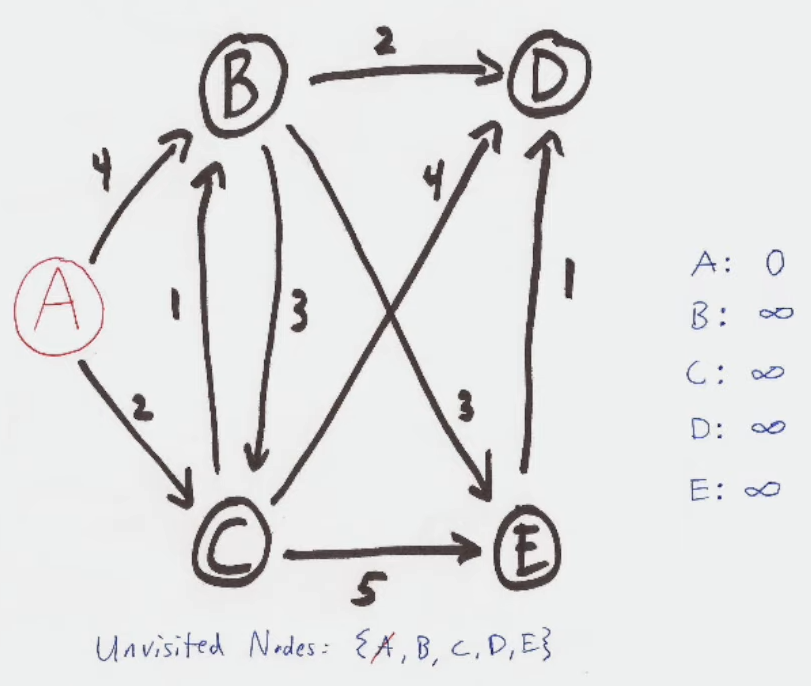 2
B
D
4
4
A
1
3
1
2
3
C
E
5
A: 0
B: ∞
C: ∞
D: ∞
E: ∞
Unvisited Nodes: {A, B, C, D, E}